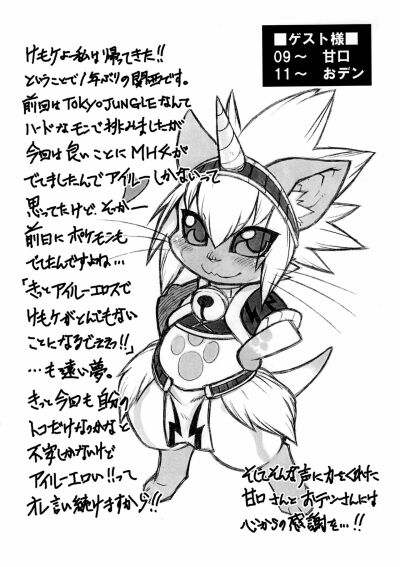 ■ゲスト様■
09～ 甘口
11～ おデン
けモケよー私は帰ってきた!!
ということで1年ぶりの関西です。
前回はTOKYO JUNGLEなんて
ハードなモンで挑みましたが
今回は良いことにMH4が
でてましたんでアイルーしかないって
思ってたけど、そっかー
前日にポケモンも
でてたんですよね…
「きっとアイルーエロスで
けモケがとんでもない
ことになるでェェっ!!」
…も遠い夢。
きっと今回も自分の
トコだけなのかなと
不安しかないけど
アイルーエロい!!って
オレ言い続けますから!!
そしてそんな声に力をくれた
甘口さんとおデンさんには
心からの感謝を…!!